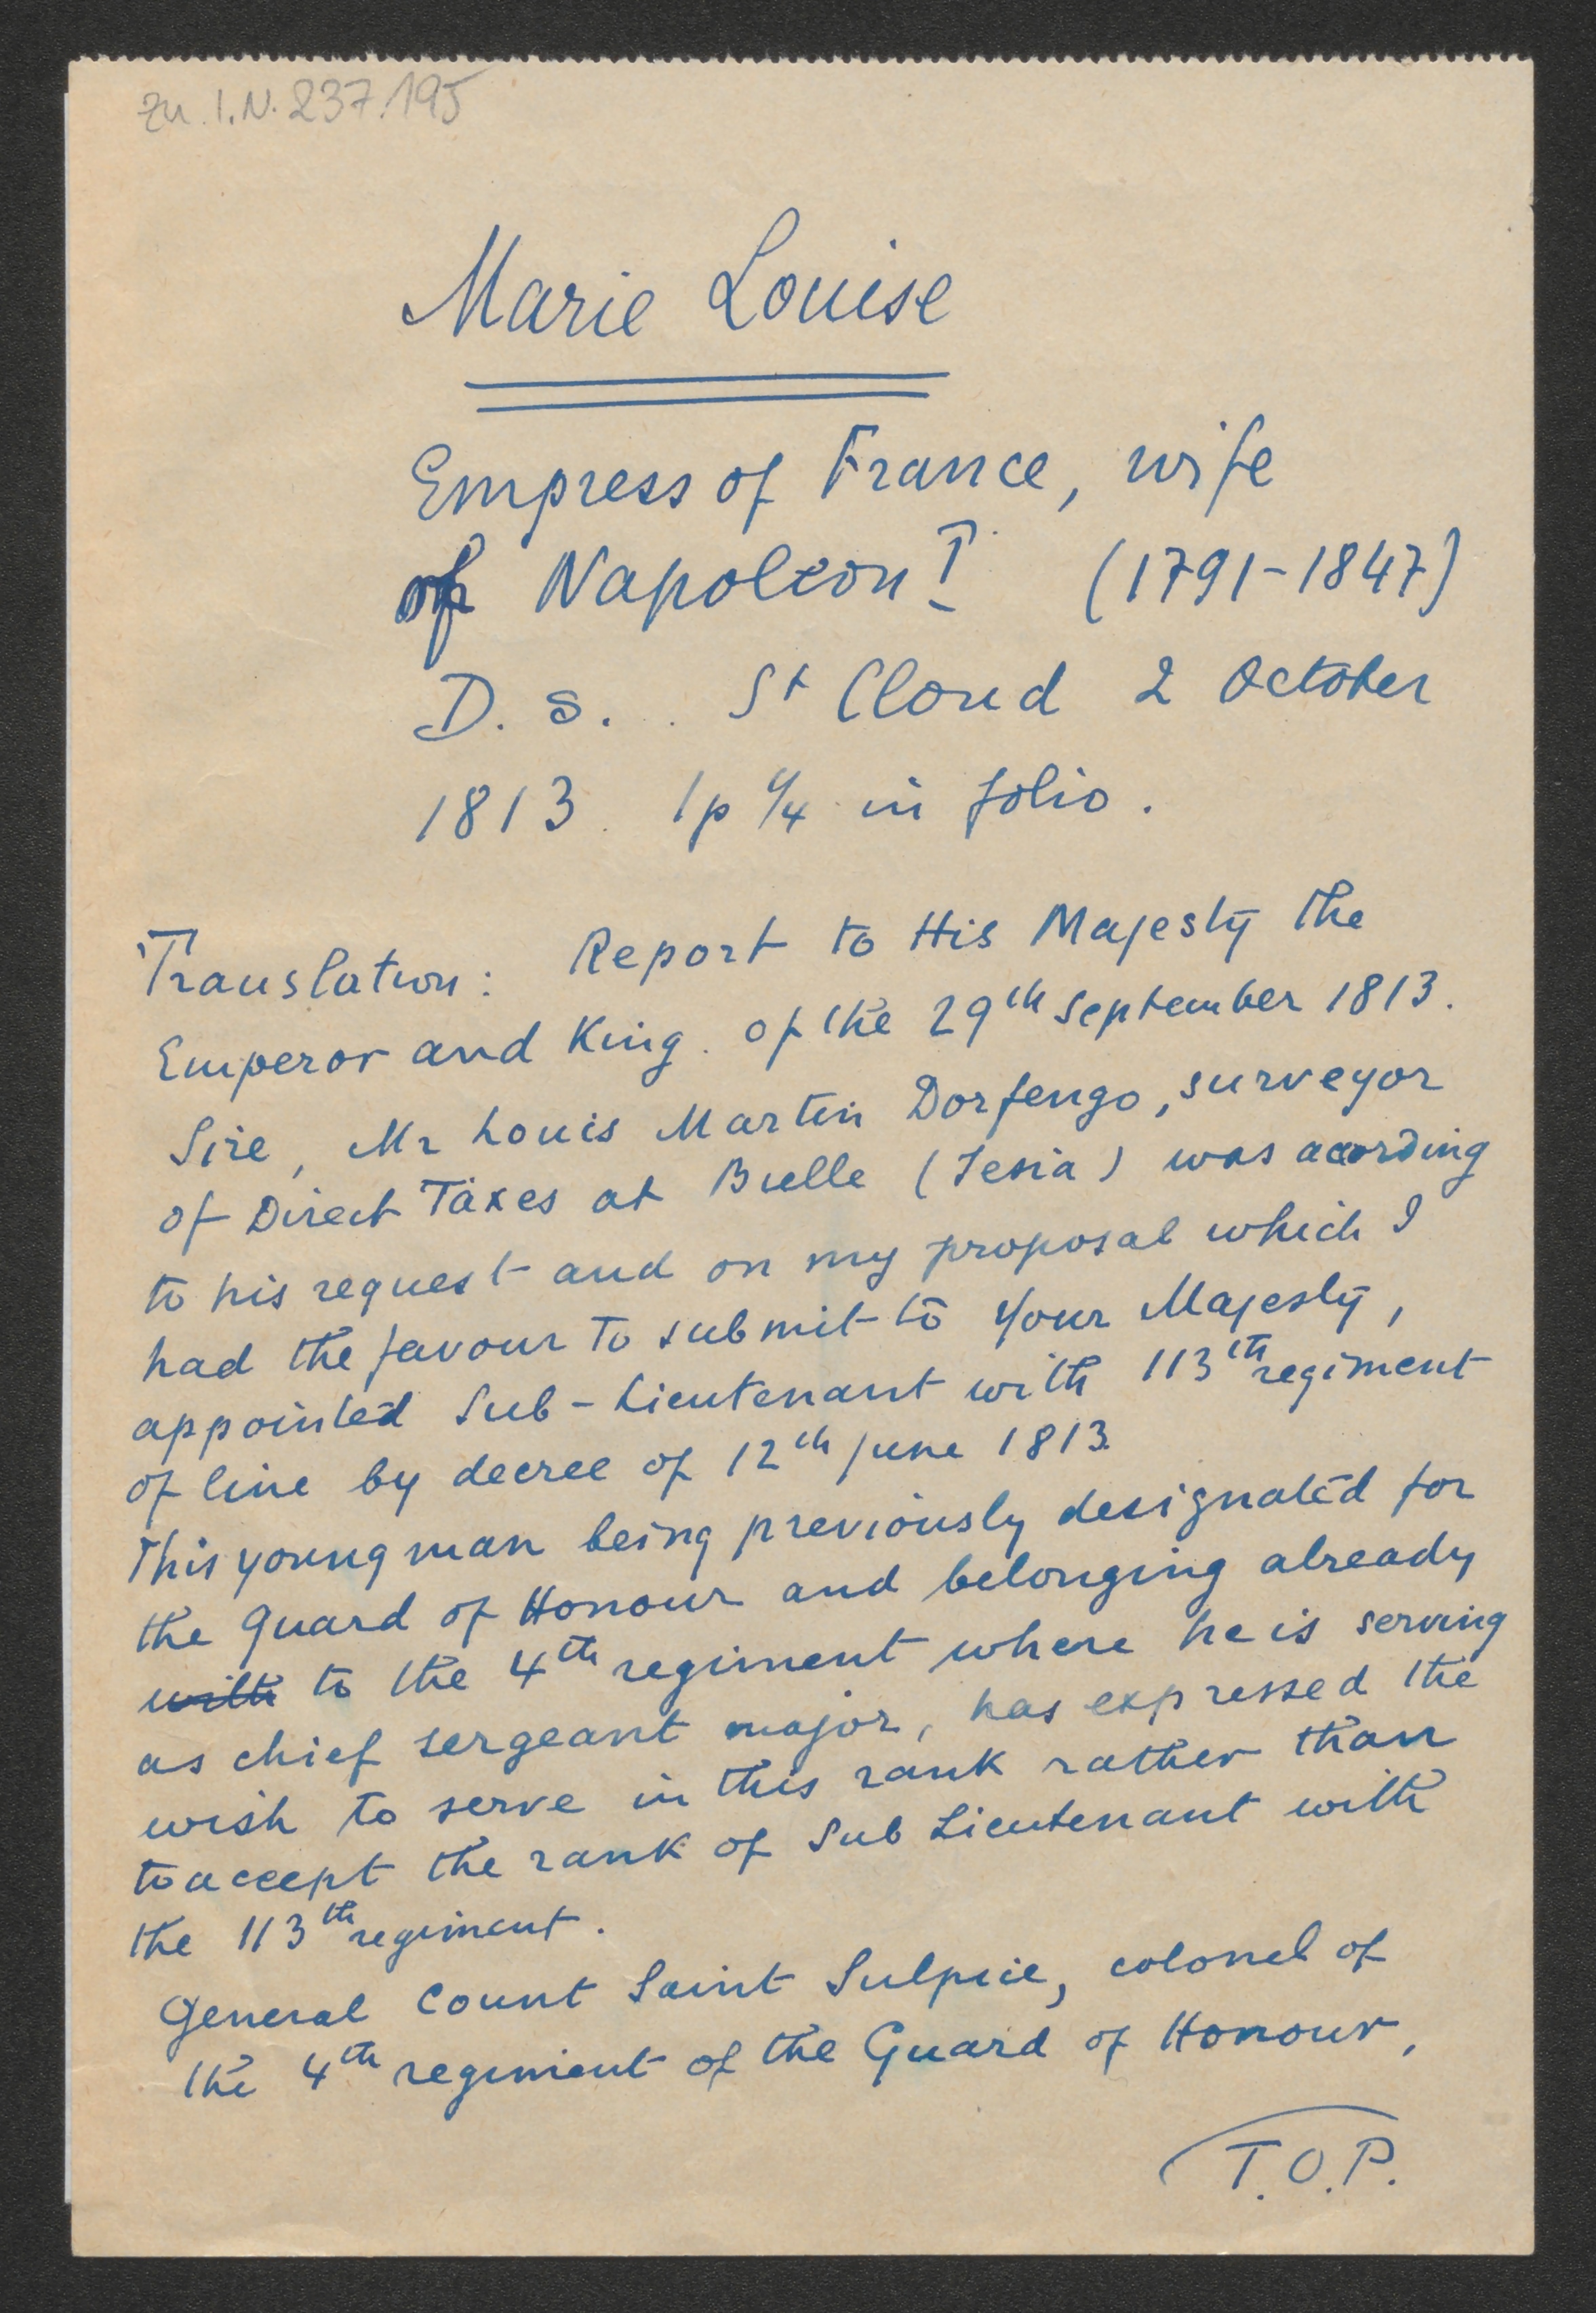 zu I.N. 237.195
Marie Louise
Empress of France, wife
of Napoleon I (1791-1847)
D. s. . St Cloud 2 October
1813. 1p 1/4 in folio.
Translation: Report to His Majesty the
Emperor and King. of the 29th September 1813.
Sire, Mr Louis Martin Dorfengo, surveyor
of Direct Taxes at Bielle (Sesia) was acording
to his request and on my proposal which I
had the favour to submit to Your Majesty,
appointed Sub-Lieutenant with 113th regiment
of line by decree of 12th june 1813.
This young man being previously designated for
the Guard of Honour and belonging already
with to the 4th regiment where he is serving
as chief sergeant major, has expressed the
wish to serve in this rank rather than
to accept the rank of Sub Lieutenant with
the 113th regiment.
General Count Saint Sulpice, colonel of
the 4th regiment of the Guard of Honour,
T.O.P.